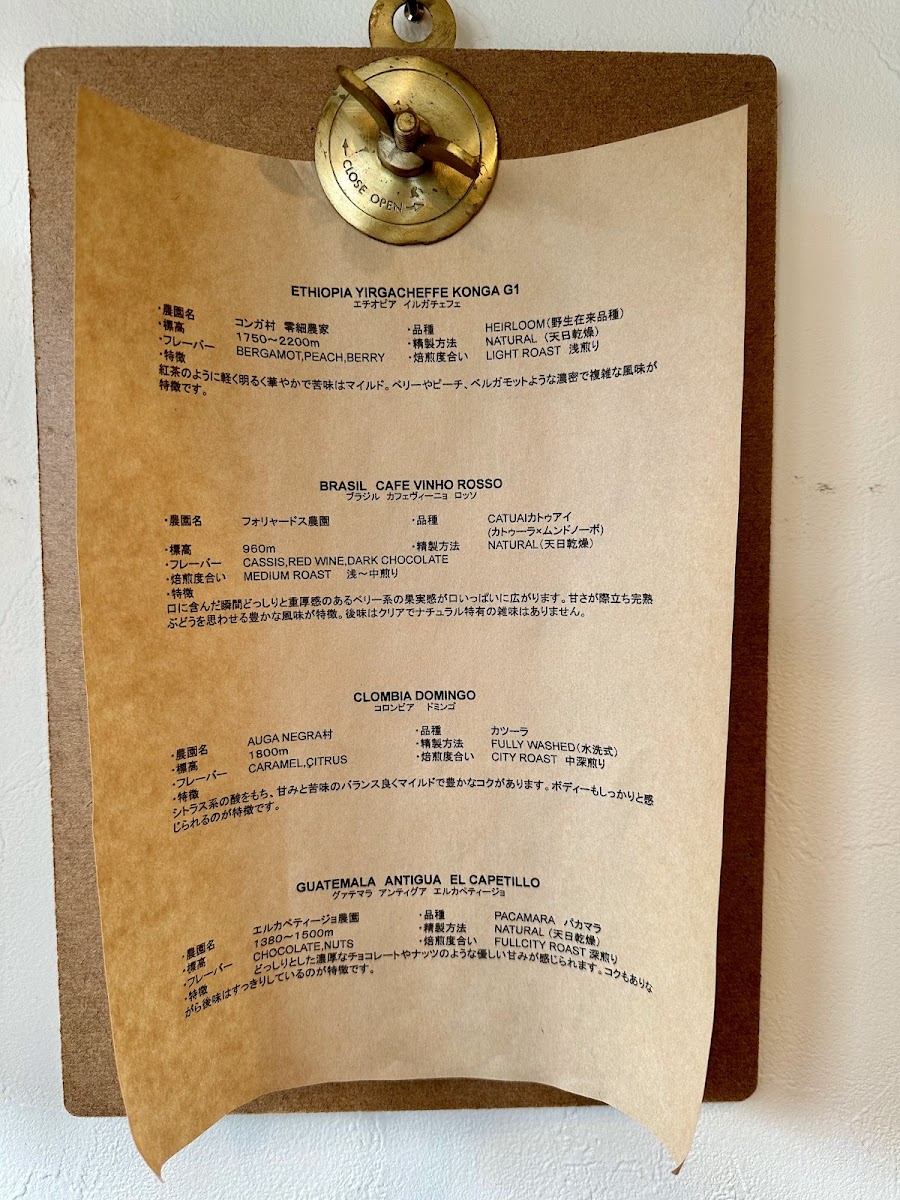 CLOSE OPEN
ETHIOPIA YIRGACHEFFE KONGA G1
エチオピア イルガチェフェ
・農園名 コンガ村 零細農家 ・品種 HEIRLOOM(野生在来品種)
・標高 1750～2200m ・精製方法 NATURAL (天日乾燥)
・フレーバー BERGAMOT,PEACH,BERRY ・焙煎度合い LIGHT ROAST 浅煎り
・特徴
紅茶のように軽く明るく華やかで苦味はマイルド。ベリーやピーチ、ベルガモットような濃密で複雑な風味が
特徴です。
BRASIL CAFE VINHO ROSSO
ブラジル カフェヴィーニョ ロッソ
・農園名 フォリャードス農園 ・品種 CATUAIカトゥアイ
(カトゥーラ×ムンドノーボ)
・標高 960m ・精製方法 NATURAL(天日乾燥)
・フレーバー CASSIS,RED WINE,DARK CHOCOLATE
・焙煎度合い MEDIUM ROAST 浅～中煎り
・特徴
口に含んだ瞬間どっしりと重厚感のあるベリー系の果実感が口いっぱいに広がります。甘さが際立ち完熟
ぶどうを思わせる豊かな風味が特徴。後味はクリアでナチュラル特有の雑味はありません。
CLOMBIA DOMINGO
コロンビア ドミンゴ
・農園名 AUGA NEGRA村 ・品種 カツーラ
・標高 1800m ・精製方法 FULLY WASHED(水洗式)
・フレーバー CARAMEL,CITRUS ・焙煎度合い CITY ROAST 中深煎り
・特徴
シトラス系の酸をもち、甘みと苦味のバランス良くマイルドで豊かなコクがあります。ボディーもしっかりと感
じられるのが特徴です。
GUATEMALA ANTIGUA EL CAPETILLO
グァテマラ アンティグア エルカペティージョ
・農園名 エルカペティージョ農園 ・品種 PACAMARA パカマラ
・標高 1380～1500m ・精製方法 NATURAL (天日乾燥)
・フレーバー CHOCOLATE,NUTS ・焙煎度合い FULLCITY ROAST 深煎り
・特徴 どっしりとした濃厚なチョコレートやナッツのような優しい甘みが感じられます。コクもありな
がら後味はすっきりしているのが特徴です。